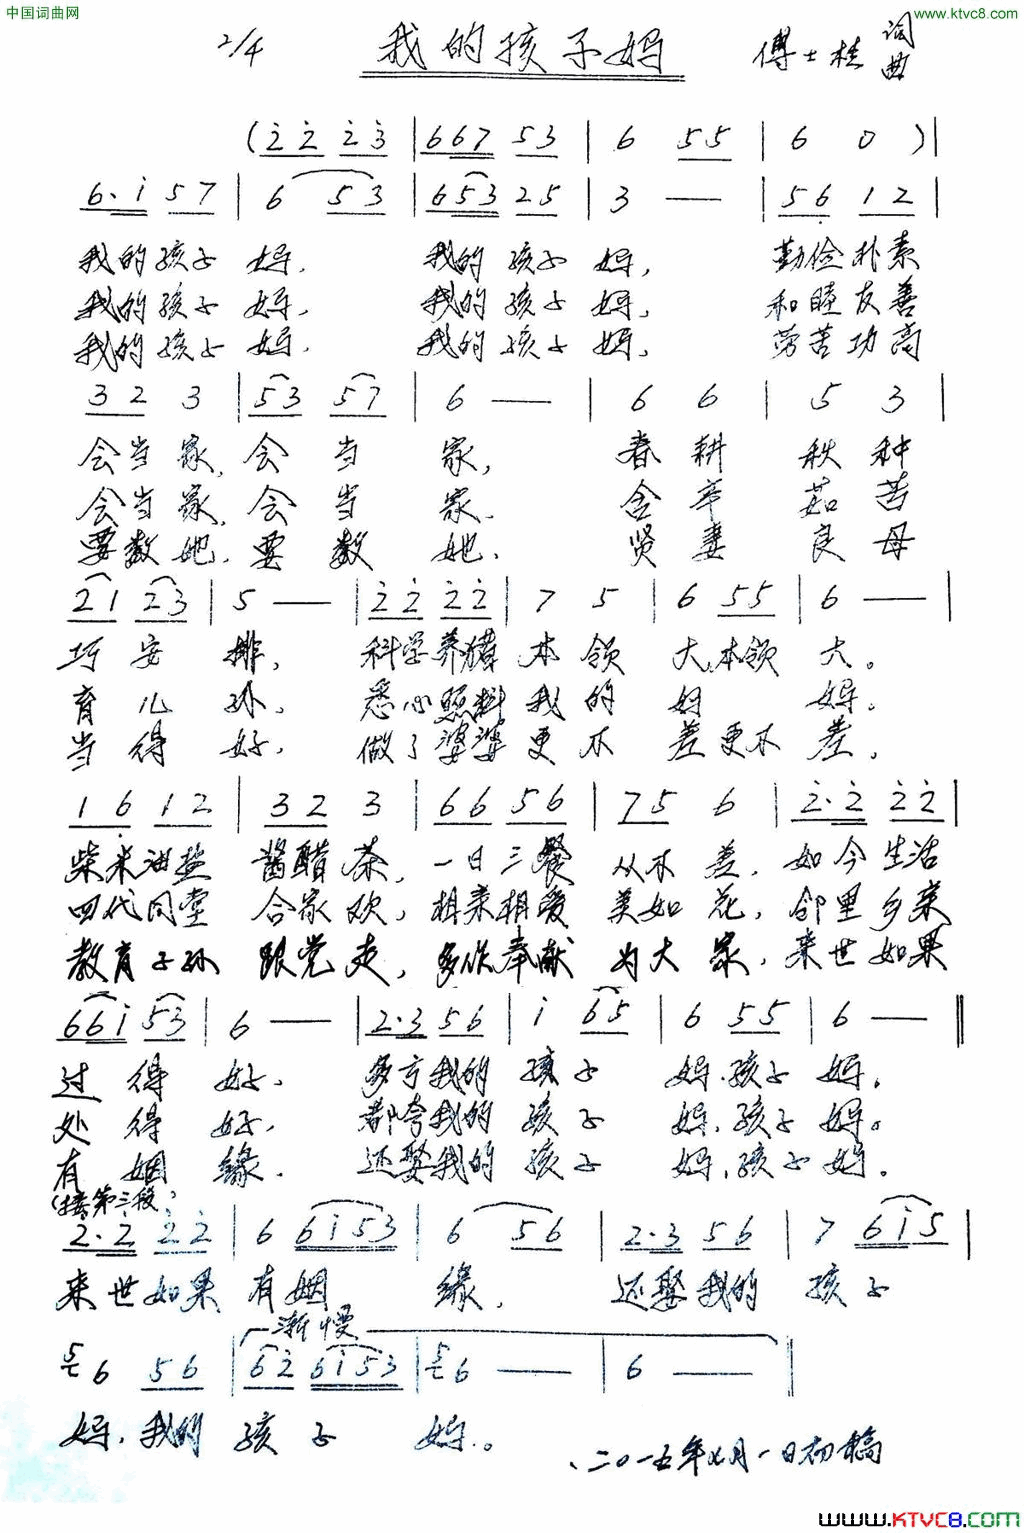 中国词曲网
www.ktvc8.com
2/4 我的孩子妈 傅士桂 词曲
(2̇ 2̇ 2̇ 3̇ | 6 6 7 5 3 | 6 5 5 | 6 0 ) |
6· i 5 7 | 6 5 3 | 6 5 3 2 5 | 3 — | 5 6̣ 1 2 |
我的孩子妈, 我的孩子妈, 勤俭朴素
我的孩子妈, 我的孩子妈, 和睦友善
我的孩子妈, 我的孩子妈, 劳苦功高
3 2 3 | 5 3 5 7 | 6 — | 6 6 | 5 3 |
会当家, 会当家, 春耕秋种
会当家, 会当家, 含辛茹苦
要数她, 要数她, 贤妻良母
2 1 2 3 | 5 — | 2̇ 2̇ 2̇ 2̇ | 7 5 | 6 5 5 | 6 — |
巧安排, 科学养猪本领大,本领大。
育儿孙, 悉心照料我的妈妈。
当得好, 做了婆婆更不差更不差,
1 6̣ 1 2 | 3 2 3 | 6 6 5 6 | 7 5 6 | 2̇· 2̇ 2̇ 2̇ |
柴米油盐酱醋茶, 一日三餐从不差, 如今生活
四代同堂合家欢, 相亲相爱美如花, 邻里乡亲
教育子孙跟党走, 多作奉献为大家, 来世如果
6 6 i 5 3 | 6 — | 2·3 5 6 | i 6 5 | 6 5 5 | 6 — ‖
过得好, 多亏我的孩子妈,孩子妈。
处得好, 都夸我的孩子妈,孩子妈。
有姻缘, 还娶我的孩子妈,孩子妈。
(接第三段)
2̇· 2̇ 2̇ 2̇ | 6 6 i 5 3 | 6 5 6 | 2·3 5 6 | 7 6 i 5 |
来世如果有姻缘, 还娶我的孩子
渐慢
5 6 5 6 | 6 2̇ 6 i 5 3 | 5 6 — — | 6 — ‖
妈,我的孩子妈。
二0一五年七月一日初稿
www.KTVC8.com